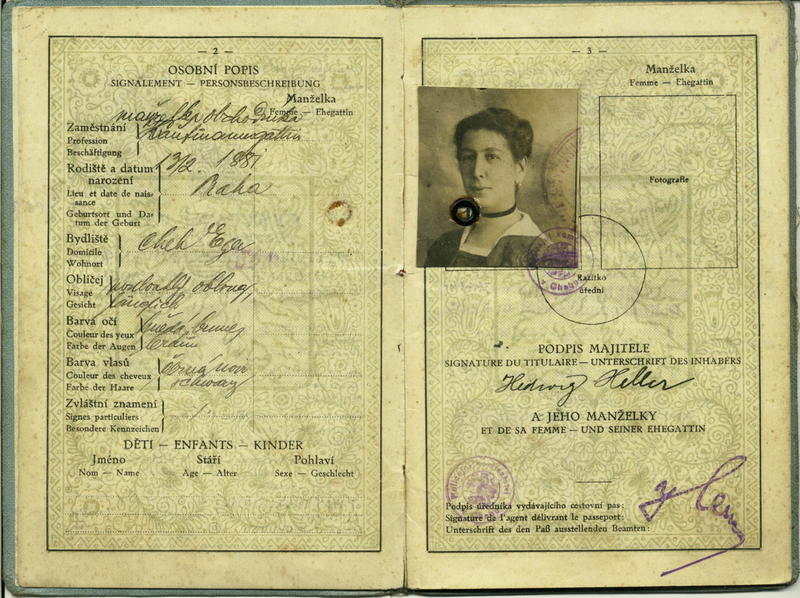 — 2 —
OSOBNÍ POPIS
SIGNALEMENT — PERSONSBESCHREIBUNG
Manželka
Femme — Ehegattin
manželka obchodníka
Zaměstnání
Kaufmannsgattin
Profession
Beschäftigung
Rodiště a datum
narození
13/2. 1881
Praha
Lieu et date de nais-
sance
Geburtsort und Da-
tum der Geburt
Bydliště
Cheb Eger
Domicile
Wohnort
Obličej
podlouhlý oblong,
Visage
länglich
Gesicht
Barva očí
Couleur des yeux
braun
Farbe der Augen
Barva vlasů
černá noir
Couleur des cheveux
schwarz
Farbe der Haare
Zvláštní znamení
Signes particuliers
Besondere Kennzeichen
DĚTI — ENFANTS — KINDER
Jméno Stáří Pohlaví
Nom — Name Age — Alter Sexe — Geschlecht
— 3 —
Manželka
Femme — Ehegattin
Fotografie
Razítko
úřední
v Chebu
PODPIS MAJITELE
SIGNATURE DU TITULAIRE — UNTERSCHRIFT DES INHABERS
Hedwig Heller
A JEHO MANŽELKY
ET DE SA FEMME — UND SEINER EHEGATTIN
Podpis úředníka vydávajícího cestovní pas:
Signature de l'agent délivrant le passeport:
Unterschrift des den Paß ausstellenden Beamten: